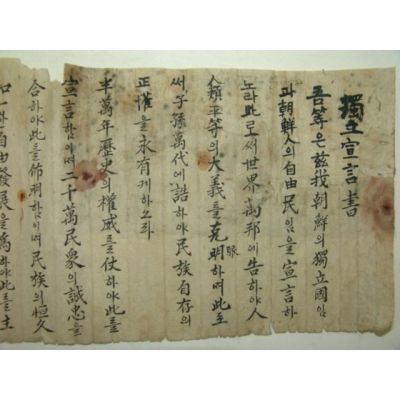 獨立宣言書
吾等은玆我朝鮮의獨立國임
과朝鮮人의自由民임을宣言하
노라此로써世界萬邦에告하야人
類平等의大義를克明하며此로
써子孫萬代에誥하야民族自存의
正權을永有케하노라
半萬年歷史의權威를仗하야此를
宣言함이며二千萬民衆의誠忠을
合하야此를佈明함이며民族의恒久
如一한自由發展을爲하야此를主